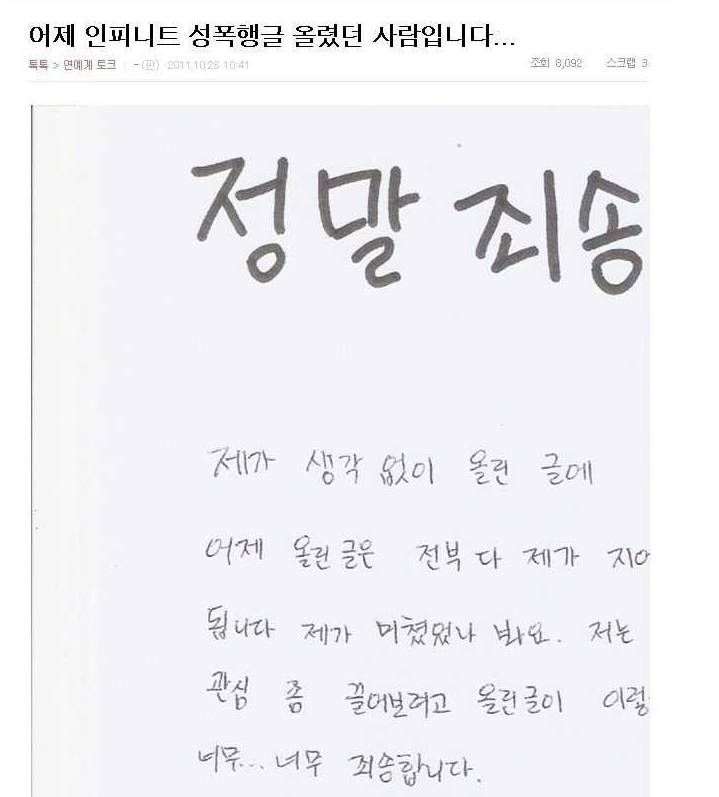 어제 인피니트 성폭행글 올렸던 사람입니다...
톡톡 > 연예게 토크 | -(판) 2011.10.28 10:41 조회 8,092 스크랩 3
정말 죄송
제가 생각 없이 올린 글에
어제 올린글은 전부 다 제가 지어
됩니다 제가 미쳤었나 봐요. 저는
관심 좀 끌어보려고 올린글이 이렇
너무... 너무 죄송합니다.